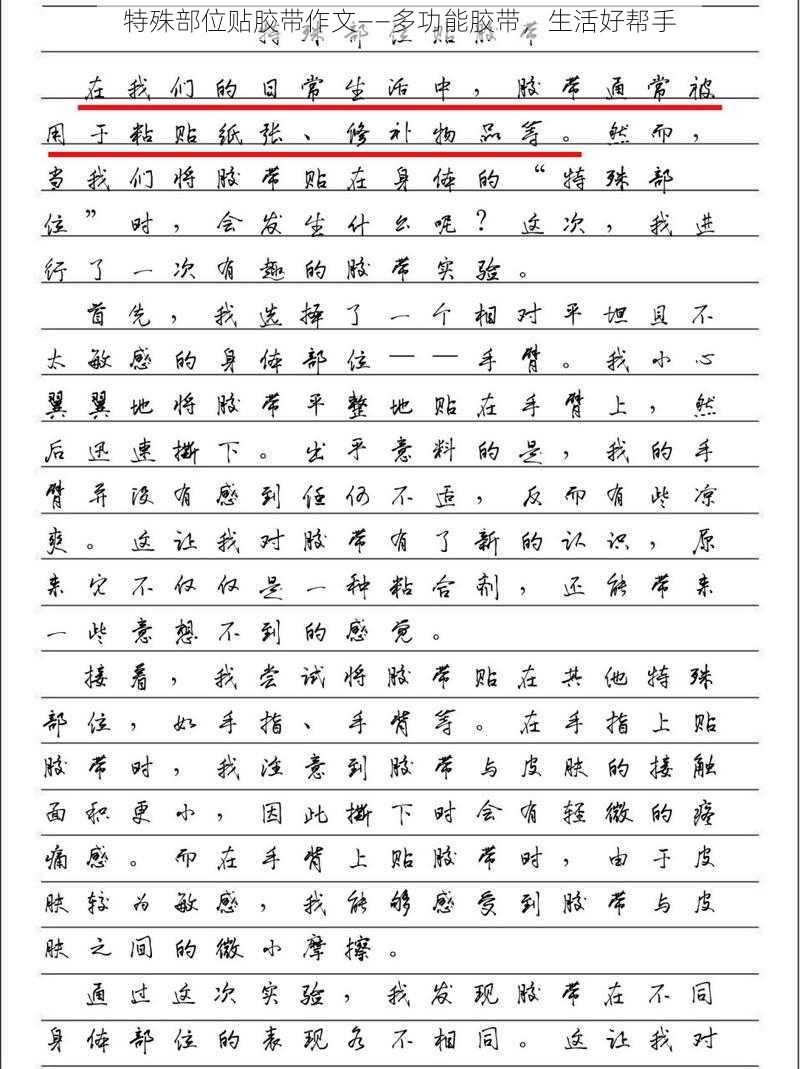 特殊部位贴胶带作文——多功能胶带，生活好帮手
特殊部位贴胶带
在我们的日常生活中，胶带通常被
用于粘贴纸张、修补物品等。然而，
当我们将胶带贴在身体的“特殊部
位”时，会发生什么呢？这次，我进
行了一次有趣的胶带实验。
首先，我选择了一个相对平坦且不
太敏感的身体部位——手臂。我小心
翼翼地将胶带平整地贴在手臂上，然
后迅速撕下。出乎意料的是，我的手
臂并没有感到任何不适，反而有些凉
爽。这让我对胶带有了新的认识，原
来它不仅仅是一种粘合剂，还能带来
一些意想不到的感觉。
接着，我尝试将胶带贴在其他特殊
部位，如手指、手背等。在手指上贴
胶带时，我注意到胶带与皮肤的接触
面积更小，因此撕下时会有轻微的疼
痛感。而在手背上贴胶带时，由于皮
肤较为敏感，我能够感受到胶带与皮
肤之间的微小摩擦。
通过这次实验，我发现胶带在不同
身体部位的表现各不相同。这让我对